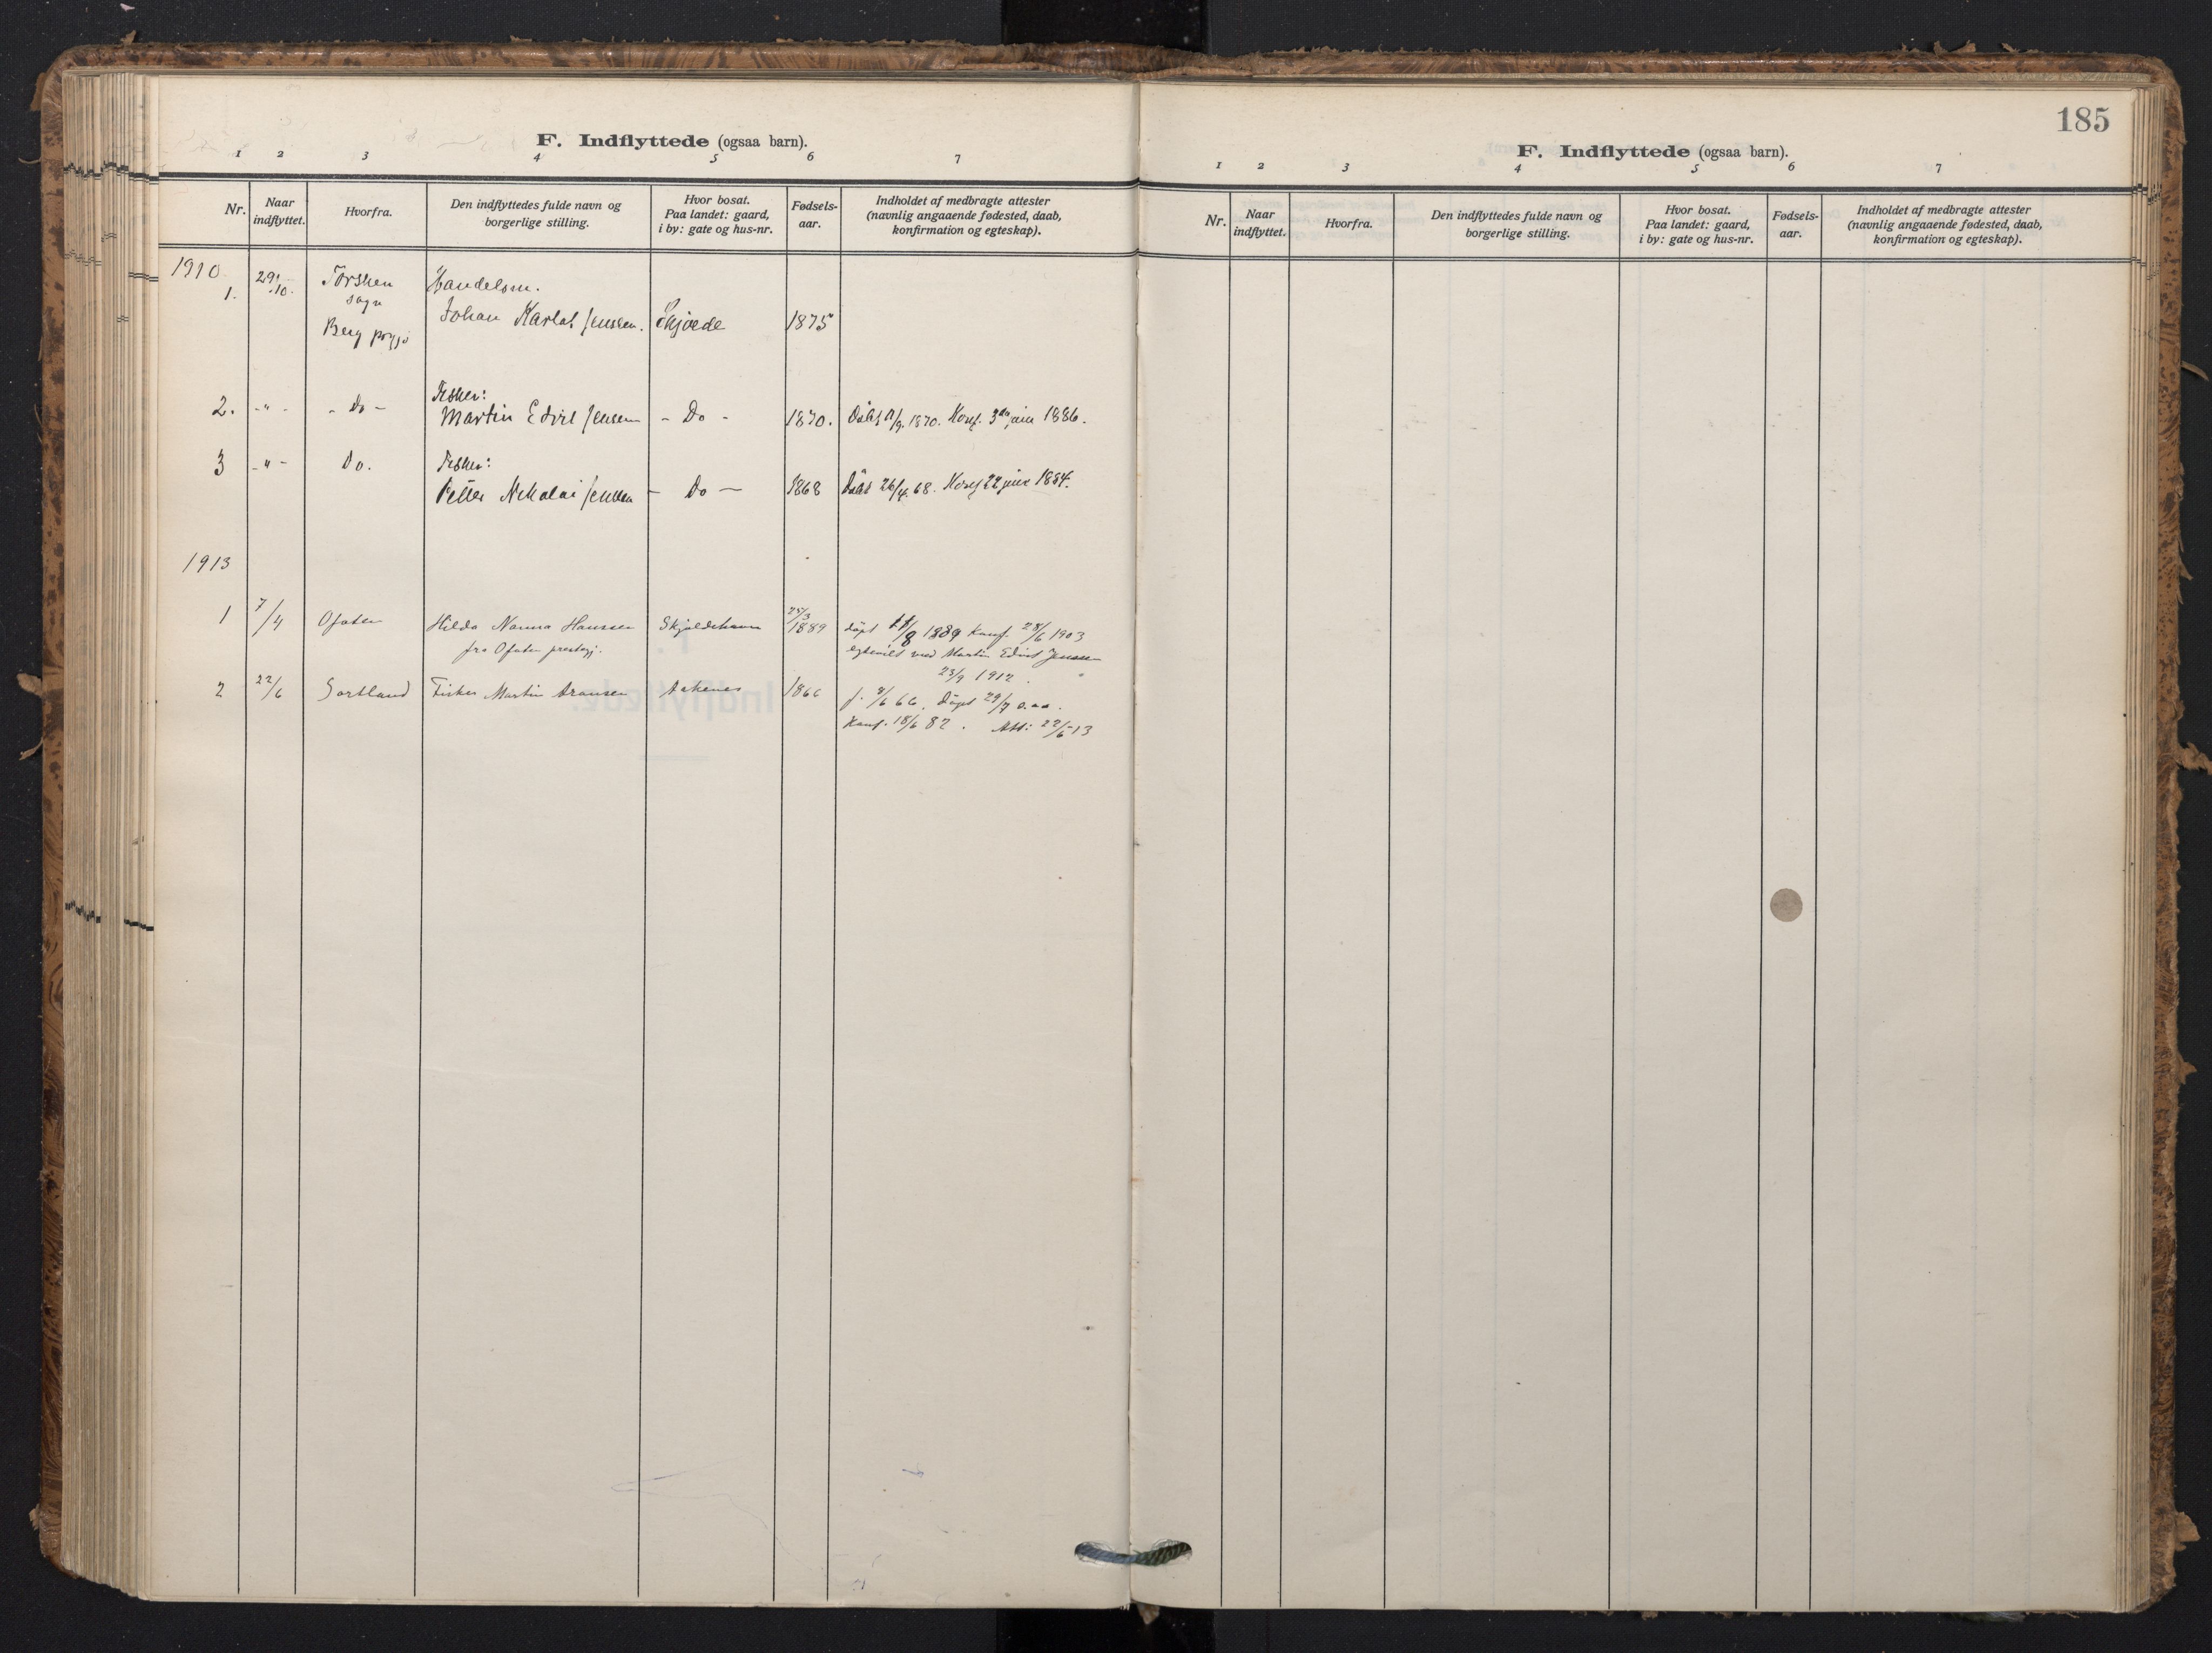 F. Indflyttede (ogsaa barn).
1 2 3 4 5 6 7
Nr. Naar indflyttet. Hvorfra. Den indflyttedes fulde navn og borgerlige stilling. Hvor bosat. Paa landet: gaard, i by: gate og hus-nr. Fødsels-aar. Indholdet af medbragte attester (navnlig angaaende fødested, daab, konfirmation og egteskap).
1910
1. 29/10. Torsken sogn Handelsm.
Berg Johan Jensen. 1875
2. -"- - Do - Fisker:
Martin Edvil Jensen - Do - 1870. 1870. Konf. 3die juni 1886.
3 -"- Do. Fisker:
Petter Nikolai Jensen - Do - 1868 Døbt 26/4.68. Konf 22 juni 1884.
1913
1 7/4 Ofoten Hilda Nanna Hanssen Skjoldehavn 25/3 1889 døpt 1889 Konf. 28/6 1903
fra Ofoten prestegj. med Martin Jensen
23/9 1912.
2 22/6 Sortland Fisker Martin Aronsen Aakenes 1866 f. 66. Døpt 29/7 s.aa.
Konf. 18/6 82. Att: 22/5-13
185
F. Indflyttede (ogsaa barn).
1 2 3 4 5 6 7
Nr. Naar indflyttet. Hvorfra. Den indflyttedes fulde navn og borgerlige stilling. Hvor bosat. Paa landet: gaard, i by: gate og hus-nr. Fødsels-aar. Indholdet af medbragte attester (navnlig angaaende fødested, daab, konfirmation og egteskap).